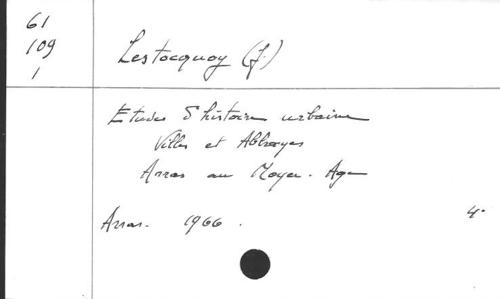 61
109
1
Lestocquoy (J.)
Etudes d'histoire urbaine
Villes et Abbayes
Arras au Moyen-Age
Arras. 1966.
4°